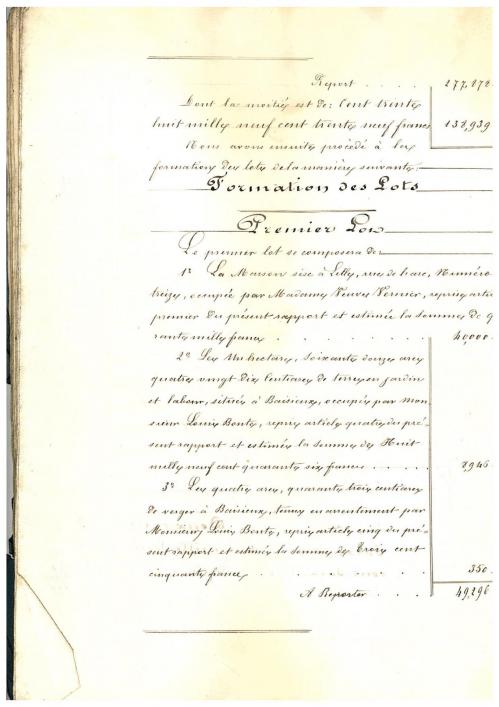 Report . . . . 277,878
Dont la moitié est de: Cent trente
huit mille neuf cent trente neuf francs 138,939
Nous avons ensuite procédé à la
formation des lots de la manière suivante
Formation des Lots
Premier Lot
Le premier lot se composera de:
1º La Maison sise à Lille, rue de , Numéro
treize, occupée par Madame Veuve Vernier, reprise article
premier du présent rapport et estimée la somme de q
rante mille francs . . . . . . . 40,000
2º Les Un hectare, soixante douze ares
quatre vingt dix centiares de terres en jardin
et labour, situées à Baisieux, occupés par Mon
sieur Louis Bonte, repris article quatre du pré-
sent rapport et estimés la somme de Huit
mille neuf cent quarante six francs . . . . . 8946
3º Les quatre ares, quarante trois centiares
de verger à Baisieux, tenus en arrentement par
Monsieur Louis Bonte, repris article cinq du pré-
sent rapport et estimés la somme de Trois cent
cinquante francs . . . . . . . . 350
A Reporter . . . . 49,296